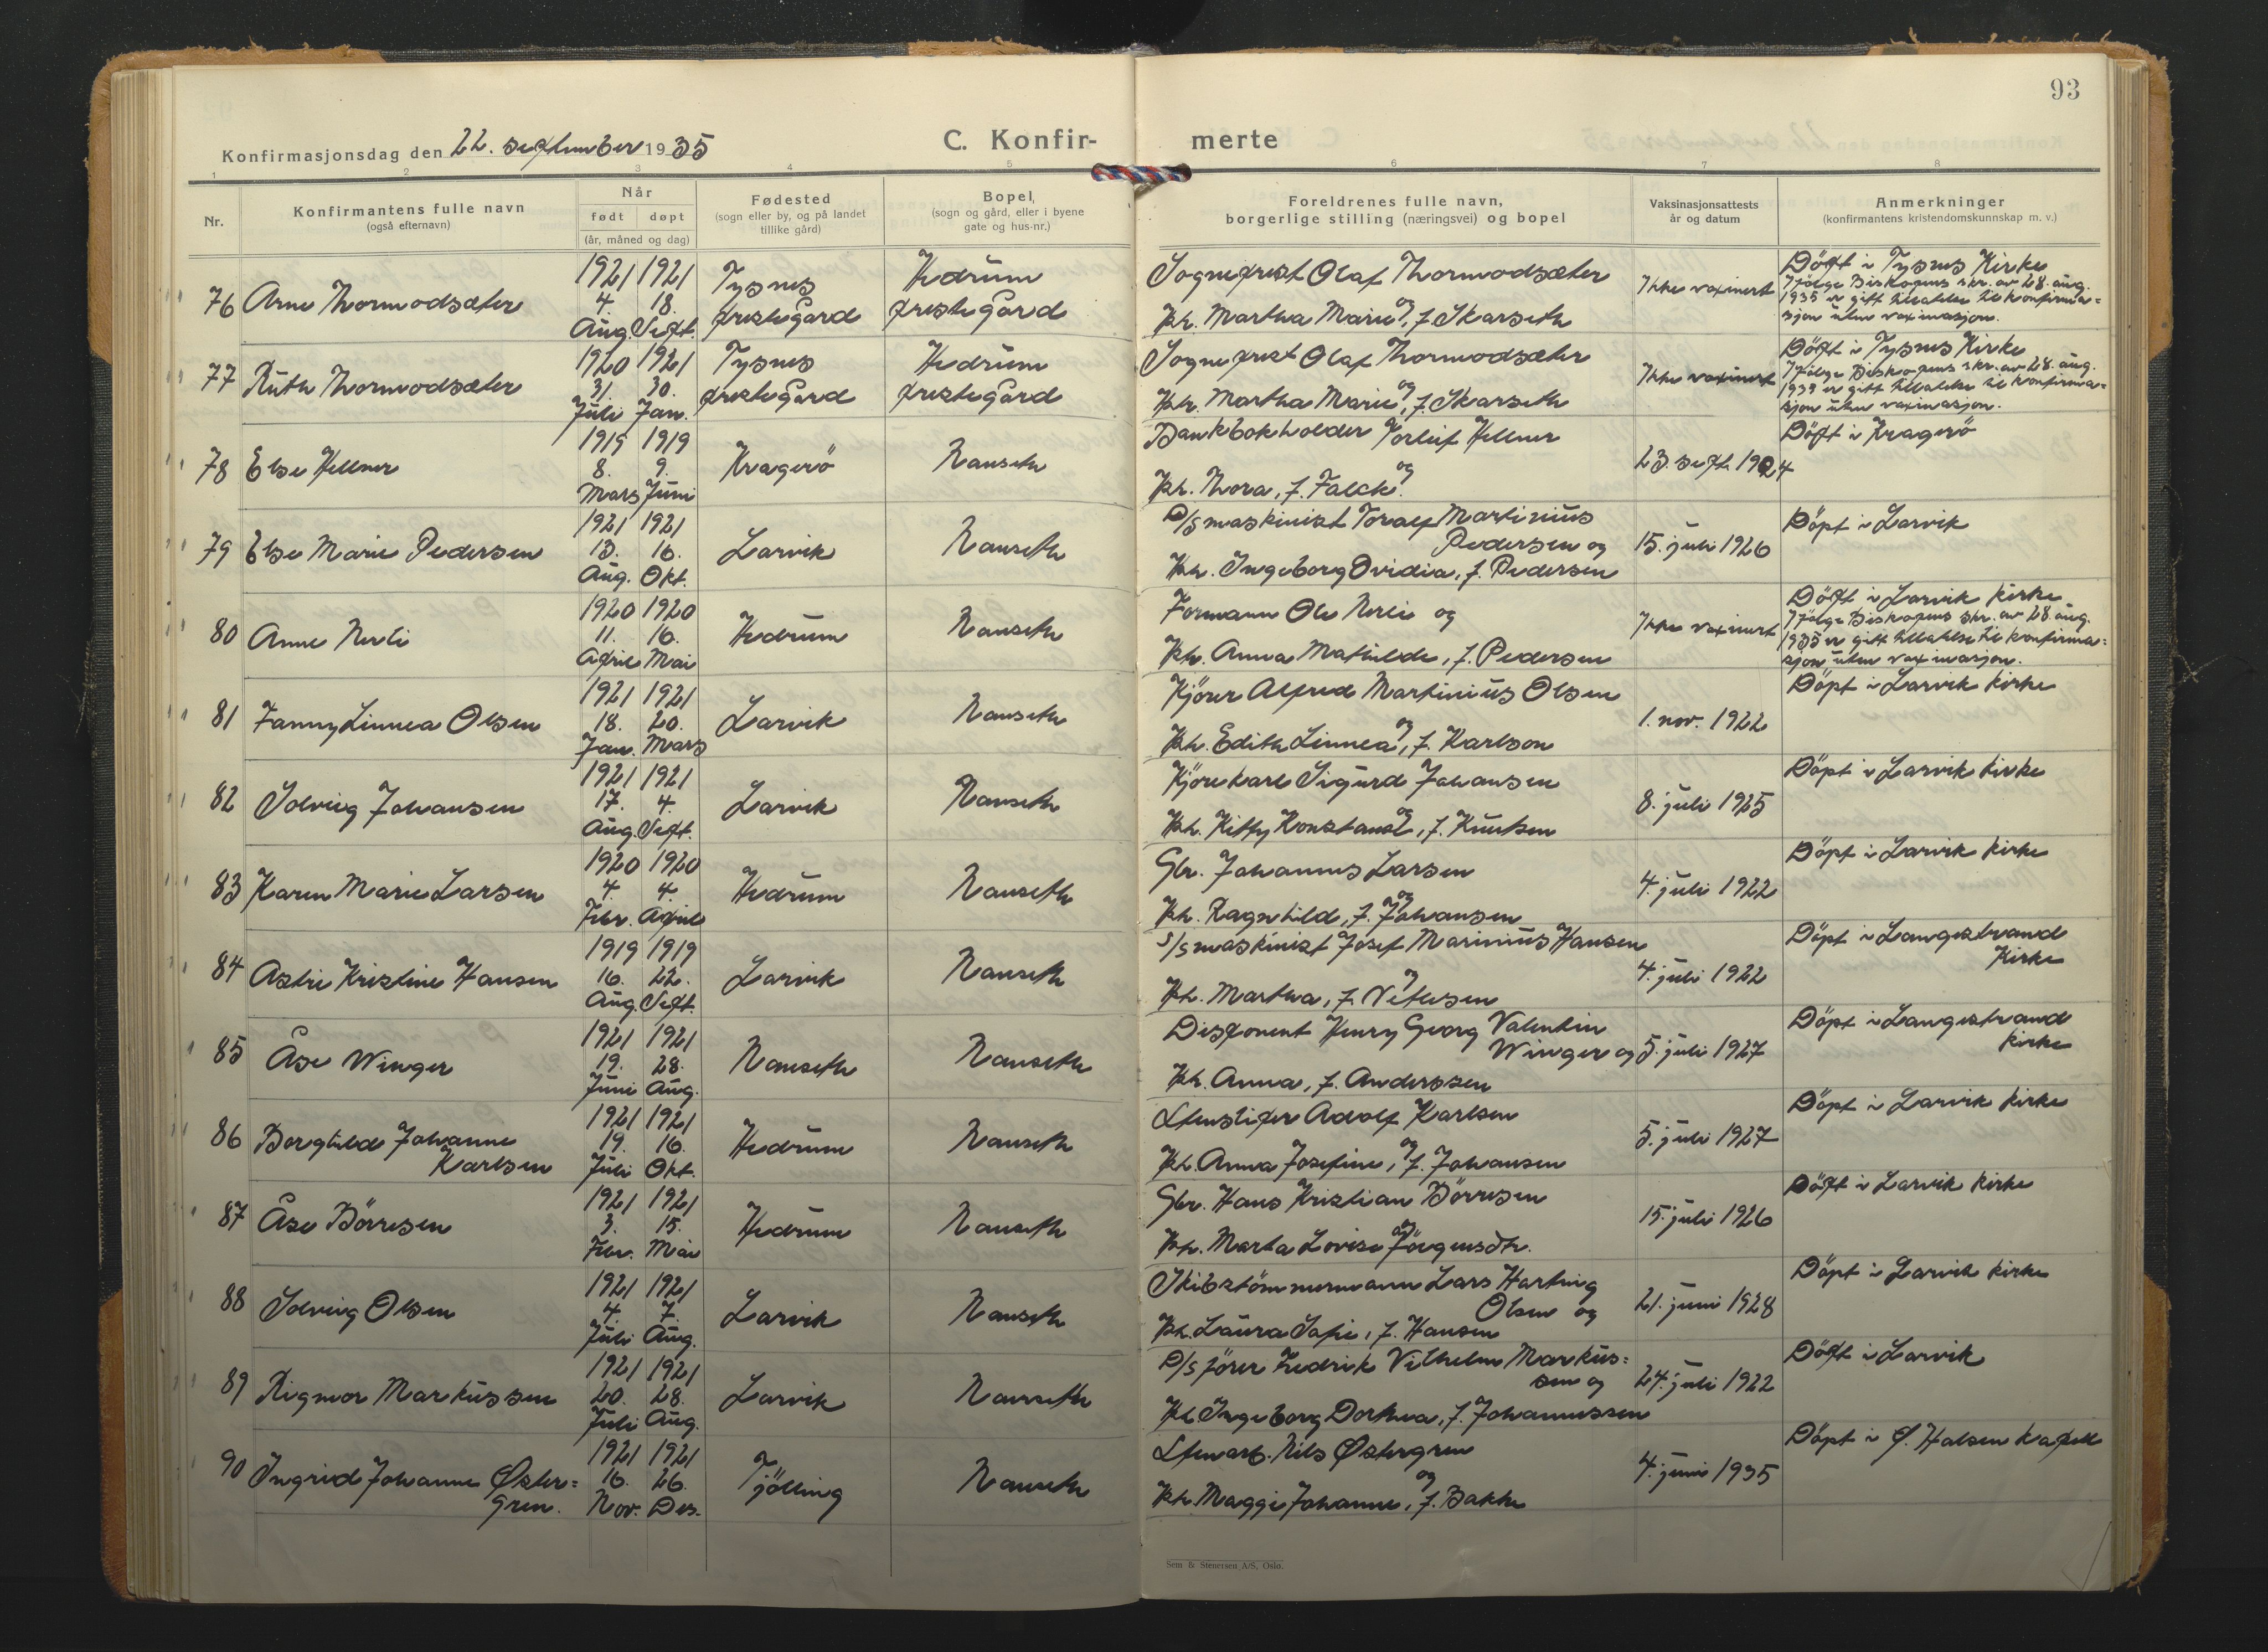 93
Konfirmasjonsdag den 22. september 1935
C. Konfir-
merte
1 2 3 4 5 6 7 8
Nr.
Konfirmantens fulle navn
(også efternavn)
Når
født døpt
(år, måned og dag)
Fødested
(sogn eller by, og på landet
tillike gård)
Bopel,
(sogn og gård, eller i byene
gate og hus-nr.)
Foreldrenes fulle navn,
borgerlige stilling (næringsvei) og bopel
Vaksinasjonsattests
år og datum
Anmerkninger
(konfirmantens kristendomskunnskap m. v.)
76 Arne Thormodsæter
1921 1921
4. 18.
Aug. Sept.
Tysnes
prestegård
Hedrum
prestegård
Sogneprest Olaf Thormodsæter
og
Hr. Martha Marie, f. Skarseth
Ikke vaxinert
Döpt i Tysnes Kirke
Ifölge Biskopens skr. av 28. aug.
1935 er gitt tillatelse til konfirma=
sjon uten vaxinasjon.
77 Ruth Thormodsæter
1920 1921
31. 30.
Juli Jan.
Tysnes
prestegård
Hedrum
prestegård
Sogneprest Olaf Thormodsæter
og
Hr. Martha Marie, f. Skarseth
Ikke vaxinert
Döpt i Tysnes Kirke
Ifölge Biskopens skr. av 28. aug.
1935 er gitt tillatelse til konfirma=
sjon uten vaxinasjon.
78 Else Hellner
1919 1919
8. 9.
Mars Juni
Kragerö
Nanseth
Bankbokholder Torleif Hellner
og
Hr. Thora, f. Falck.
23. sept. 1924
Döpt i Kragerö
79 Else Marie Pedersen
1921 1921
13. 16.
Aug. Okt.
Larvik
Nanseth
D/s maskinist Toralf Martinius
Pedersen og
Hr. Ingeborg Ovidia, f. Pedersen
15. juli 1926
Döpt i Larvik
80 Anne Nerli
1920 1920
11. 16.
April Mai
Hedrum
Nanseth
Formann Ole Nerli og
Hr. Anna Mathilde, f. Pedersen
Ikke vaxinert
Döpt i Larvik kirke
Ifölge Biskopens skr. av 28. aug.
1935 er gitt tillatelse til konfirma=
sjon uten vaxinasjon.
81 Fanny Linnea Olsen
1921 1921
18. 20.
Jan. Mars
Larvik
Nanseth
Kjörer Alfred Martinius Olsen
og
Hr. Edith Linnea, f. Karlson
1. nov. 1922
Döpt i Larvik kirke
82 Solveig Johansen
1921 1921
17. 4.
Aug. Sept.
Larvik
Nanseth
Kjörekarl Sigurd Johansen
og
Hr. Kitty Konstanse, f. Knutsen
8. juli 1925
Döpt i Larvik kirke
83 Karen Marie Larsen
1920 1920
4. 4.
Febr. April
Hedrum
Nanseth
Gbr. Johannes Larsen
og
Hr. Ragnhild, f. Johansen
4. juli 1922
Döpt i Larvik kirke
84 Astri Kristine Hansen
1919 1919
16. 22.
Aug. Sept.
Larvik
Nanseth
S/s maskinist Josef Marinius Hansen
og
Hr. Martha, f.
4. juli 1922
Döpt i Langestrand
Kirke
85 Åse Winger
1921 1921
19. 28.
Juni Aug.
Nanseth
Nanseth
Disponent Henry Georg Valentin
Winger og
Hr. Anna, f. Anderssen
5. juli 1927
Döpt i Langestrand
kirke
86 Borghild Johanne
Karlsen
1921 1921
19. 16.
Juli Okt.
Hedrum
Nanseth
Stensliper Adolf Karlsen
og
Hr. Anna Josefine, f. Johansen
5. juli 1927
Döpt i Larvik kirke
87 Åse Börresen
1921 1921
3. 15.
Febr. Mai
Hedrum
Nanseth
Gbr. Hans Kristian Börresen
og
Hr. Marta Lovise Jörgensdtr.
15. juli 1926
Döpt i Larvik kirke
88 Solveig Olsen
1921 1921
4. 7.
Juli Aug.
Larvik
Nanseth
Skibstömmermann Lars Hartvig
Olsen og
Hr. Laura Sofie, f. Hansen
21. juni 1928
Döpt i Larvik kirke
89 Rigmor Markussen
1921 1921
20. 28.
Juli Aug.
Larvik
Nanseth
D/s förer Fredrik Vilhelm Markus=
sen og
Hr. Ingeborg Dorthea, f. Johannessen
24. juli 1922
Döpt i Larvik
90 Ingrid Johanne Øster=
gren.
1921 1921
16. 26.
Nov. Des.
Tjölling
Nanseth
Stenarb. Nils Østergren
og
Hr. Maggi Johanne, f. Bakke
4. juni 1935
Döpt i Ø. Halsen kapell
Sem & Stenersen A/S, Oslo.